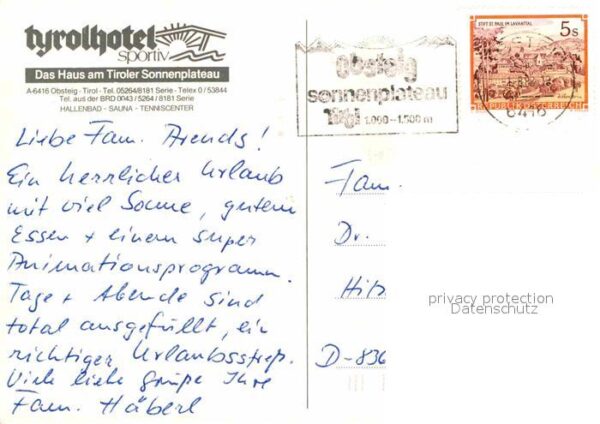 tyrolhotel
sportiv
Das Haus am Tiroler Sonnenplateau
A-6416 Obsteig · Tirol - Tel. 05264/8181 Serie - Telex 0 / 53844
Tel. aus der BRD 0043 / 5264 / 8181 Serie
HALLENBAD - SAUNA - TENNISCENTER
Liebe Fam. Arends!
Ein herrlicher Urlaub
mit viel Sonne, gutem
Essen + einem super
Animationsprogramm.
Tage + Abende sind
total ausgefüllt, ein
richtiger Urlaubsstreß.
Viele liebe Grüße Ihre
Fam. Häberl
Obsteig
sonnenplateau
Tirol 1.000 - 1.500 m
STIFT ST. PAUL IM LAVANTTAL
5s
REPUBLIK ÖSTERREICH
6416
Fam.
Dr.
D-836
privacy protection
Datenschutz